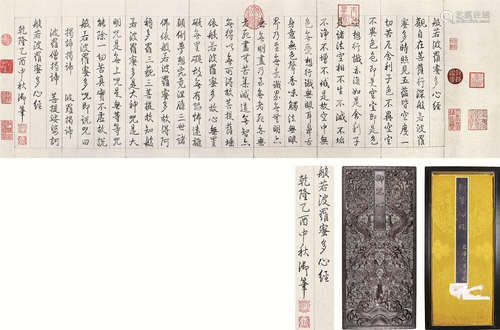 般若波羅蜜多心經
觀自在菩薩行深般若波羅
蜜多時照見五蘊皆空度一
切苦厄舍利子色不異空空
不異色色即是空空即是色
受想行識亦復如是舍利子
是諸法空相不生不滅不垢
不淨不增不減是故空中無
色無受想行識無眼耳鼻舌
身意無色聲香味觸法無眼
界乃至無意識界無無明亦
無無明盡乃至無老死亦無
老死盡無苦集滅道無智亦
無得以無所得故菩提薩埵
依般若波羅蜜多故心無罣
礙無罣礙故無有恐怖遠離
顛倒夢想究竟涅槃三世諸
佛依般若波羅蜜多故得阿
耨多羅三藐三菩提故知般
若波羅蜜多是大神咒是大
明咒是無上咒是無等等咒
能除一切苦真實不虛故說
般若波羅蜜多咒即說咒曰
揭諦揭諦 波羅揭諦
波羅僧揭諦 菩提娑婆訶
般若波羅蜜多心經
乾隆乙酉中秋御筆
般若波羅蜜多心經
乾隆乙酉中秋御筆